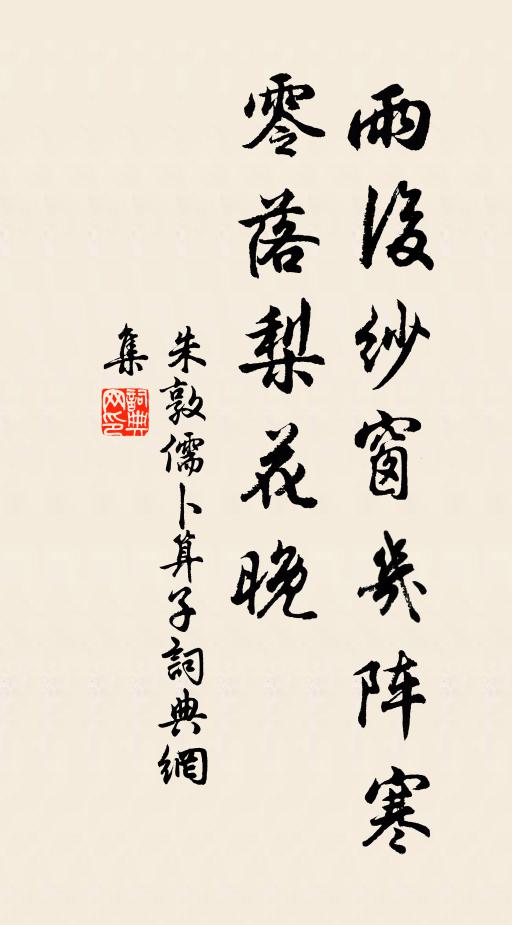 雨後紗窗幾阵寒
零落梨花晚
朱敦儒卜算子詞典網
集
詞典
网印